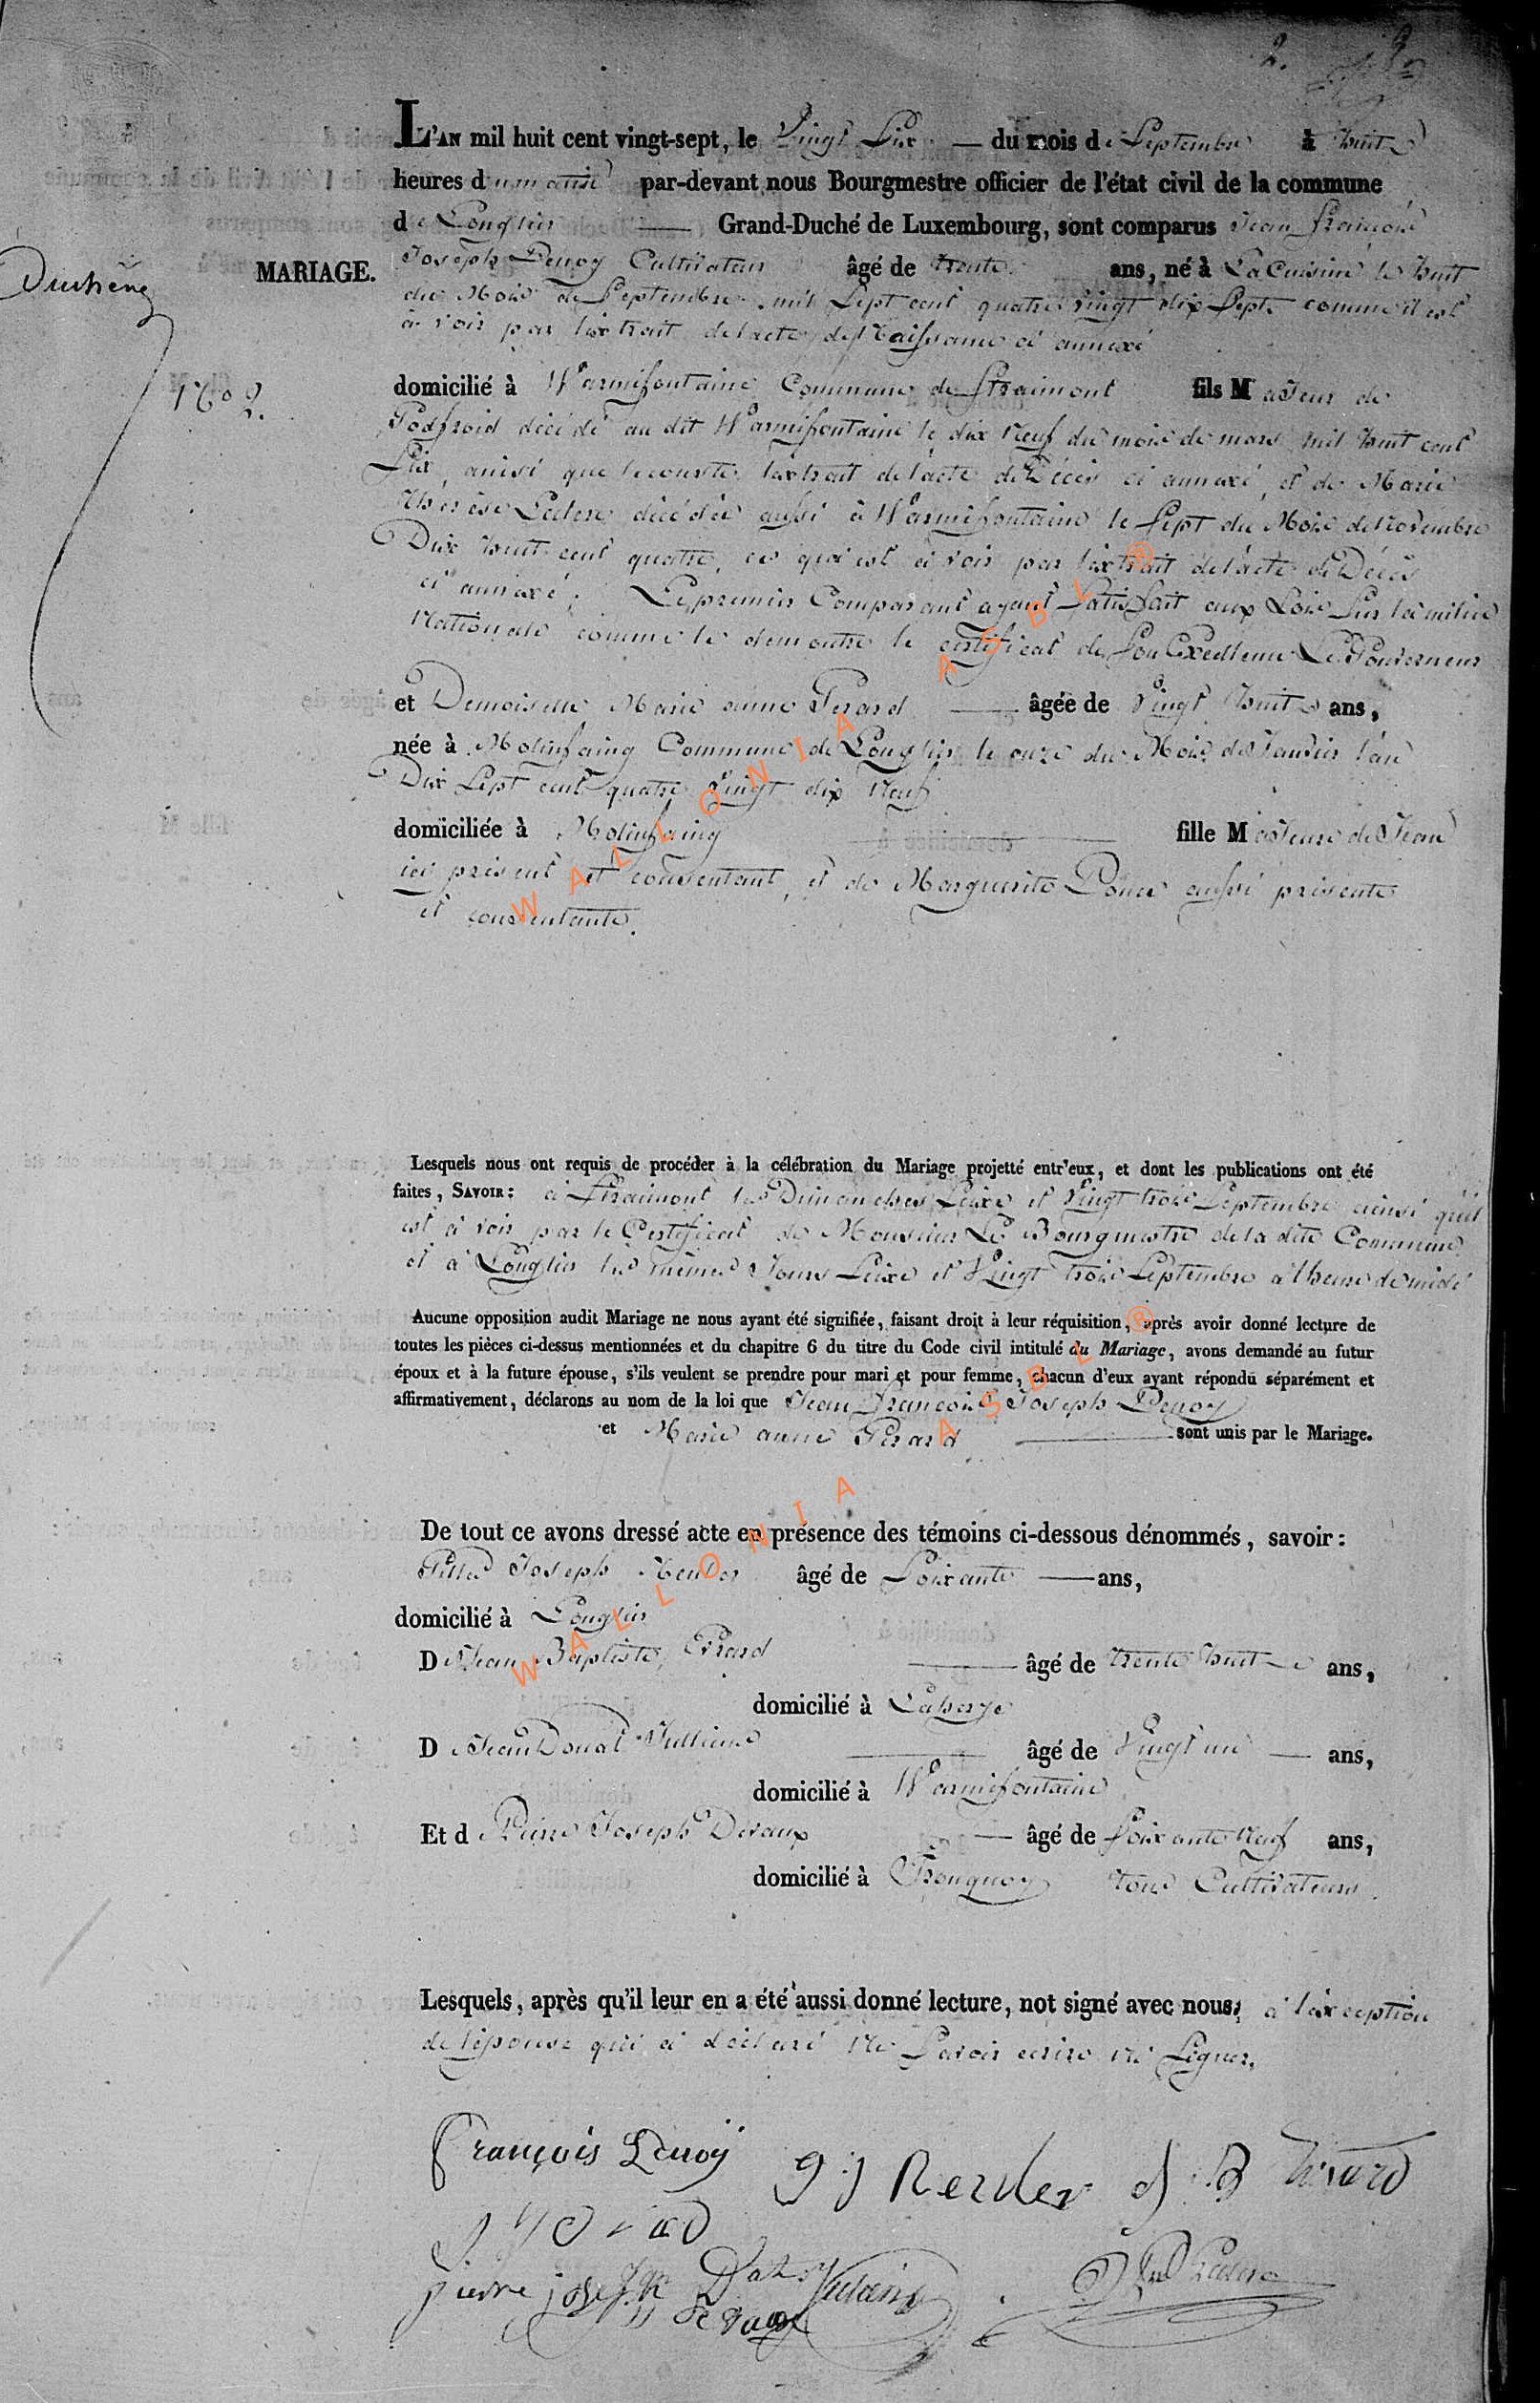 2.
L'AN mil huit cent vingt-sept, le Vingt Six — du mois de Septembre à huit
heures du matin par-devant nous Bourgmestre officier de l'état civil de la commune
de Longlier — Grand-Duché de Luxembourg, sont comparus Jean françois
MARIAGE. Joseph Denoy Cultivateur âgé de trente ans, né à La Cuisine le huit
du Mois de Septembre mil Sept cent quatre Vingt dix Sept comme il est
à voir par l'extrait de l'acte de Naissance ci annexé
domicilié à Warmifontaine Commune de Straimont fils Majeur de
Godfroid décédé au dit Warmifontaine le dix Neuf du mois de mars mil huit cent
Six, ainsi que le conste l'extrait de l'acte de Décès ci annexé, et de Marie
Thérèse Leclere décédée aussi à Warmifontaine le Sept du Mois de Novembre
Dix huit cent quatre, ce qui est à voir par l'extrait de l'acte de Décès
ci annexé. Le premier Comparant ayant Satisfait aux Lois Sur la milice
Nationale comme le demontre le certificat de Son Excellence Le Gouverneur
et Demoiselle Marie anne Gerard — âgée de Vingt huit ans,
née à Molinfaing Commune de Longlier le onze du Mois de Janvier l'an
Dix Sept cent quatre Vingt dix Neuf
domiciliée à Molinfaing — fille Majeure de Jean
ici présent et consentant, et de Marguerite Ponce aussi présente
et consentante.
Lesquels nous ont requis de procéder à la célébration du Mariage projetté entr'eux, et dont les publications ont été
faites, SAVOIR: à Straimont les Dimanches Seize et Vingt trois Septembre ainsi qu'il
est à voir par le Certificat de Monsieur Le Bourgmestre de la dite Commune
et à Longlier les mêmes Jours Seize et Vingt trois Septembre à l'heure de midi
Aucune opposition audit Mariage ne nous ayant été signifiée, faisant droit à leur réquisition, après avoir donné lecture de
toutes les pièces ci-dessus mentionnées et du chapitre 6 du titre du Code civil intitulé du Mariage, avons demandé au futur
époux et à la future épouse, s'ils veulent se prendre pour mari et pour femme, chacun d'eux ayant répondu séparément et
affirmativement, déclarons au nom de la loi que Jean François Joseph Denoy
et Marie anne Gerard — sont unis par le Mariage.
De tout ce avons dressé acte en présence des témoins ci-dessous dénommés, savoir:
Joseph âgé de Soixante — ans,
domicilié à Longlier
De Jean Baptiste Evrard — âgé de trente huit ans,
domicilié à Laherye
D Jean Donat — âgé de Vingt un — ans,
domicilié à Warmifontaine
Et d Pierre Joseph Devaux — âgé de Soixante Neuf ans,
domicilié à Tronquoy tous Cultivateurs.
Lesquels, après qu'il leur en a été aussi donné lecture, not signé avec nous, à l'exception
de l'épouse qui a déclaré Ne Savoir ecrire ni Signer.
françois Denoy
pierre joseph devaux
WALLONIA ASBL ®
WALLONIA ASBL ®